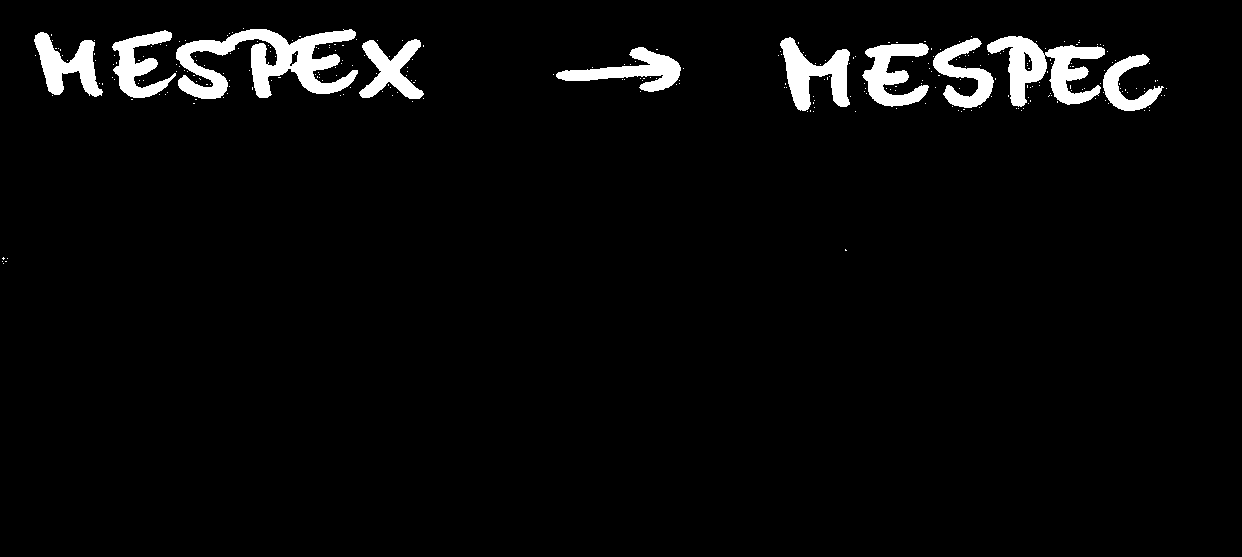 MESPEX → MESPEC